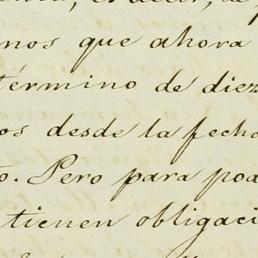 nos que ahora
término de diez
os desde la fecha
o. Pero para pod
tienen obligaci